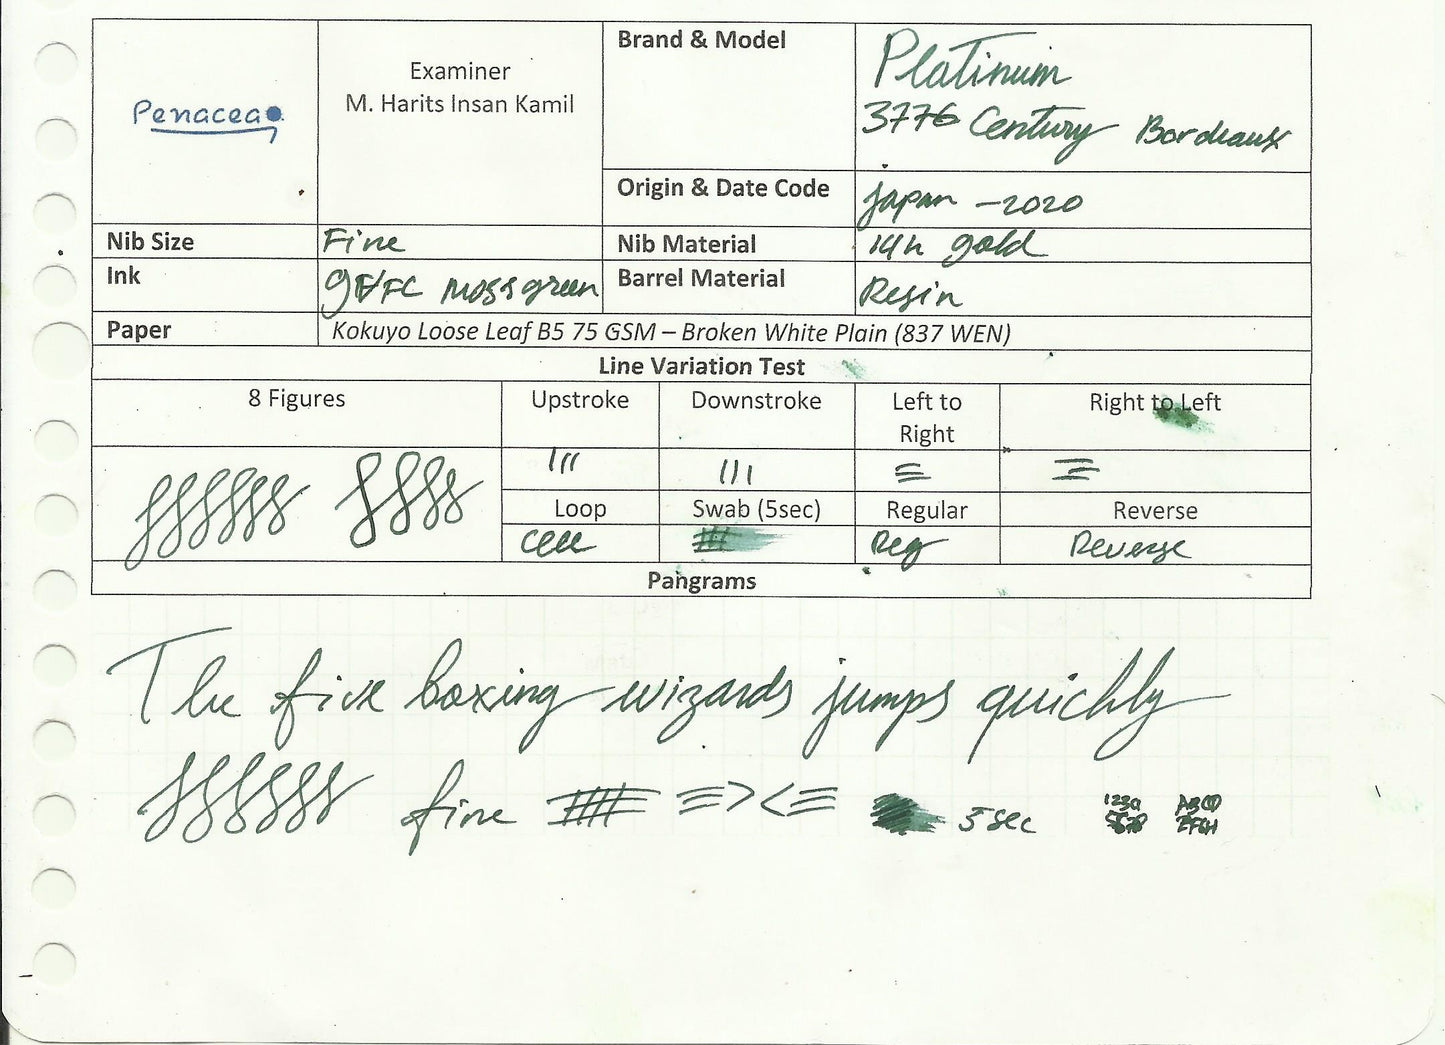 Penacea
Examiner
M. Harits Insan Kamil
Brand & Model
Platinum
3776 Century Bordeaux
Origin & Date Code
Japan - 2020
Nib Size
Fine
Nib Material
14k gold
Ink
Moss green
Barrel Material
Resin
Paper
Kokuyo Loose Leaf B5 75 GSM – Broken White Plain (837 WEN)
Line Variation Test
8 Figures
Upstroke
Downstroke
Left to
Right
Right to Left
Loop
Swab (5sec)
Regular
Reverse
Reg
Reverse
Pangrams
The five boxing wizards jumps quickly
fine
5 sec
ABCD
5678
EFGH